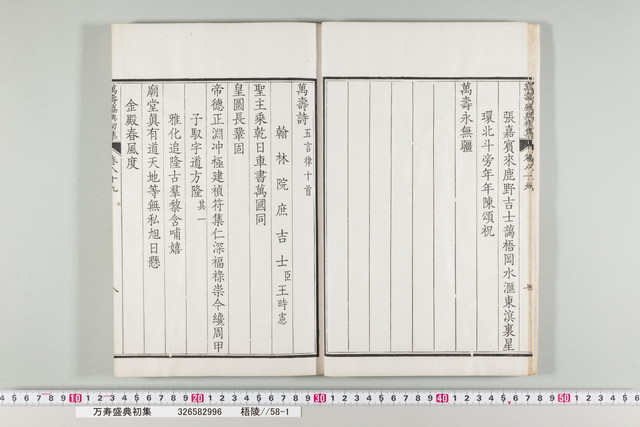 張嘉賓來鹿野吉士藹梧岡水滙東溟裏星
環北斗旁年年陳頌祝
萬壽永無疆
萬壽詩 五言律十首
翰林院庶吉士臣王時憲
聖主乘乾日車書萬國同
皇圖長鞏固
帝德正淵冲極建禎符集仁深福祿崇今纔周甲
子馭宇道方隆 其一
雅化追隆古羣黎含哺嬉
廟堂眞有道天地等無私旭日懸
金殿春風度
萬壽盛典初集 卷八十九
八
万寿盛典初集 326582996 梧陵//58-1
10 20 30 40 50